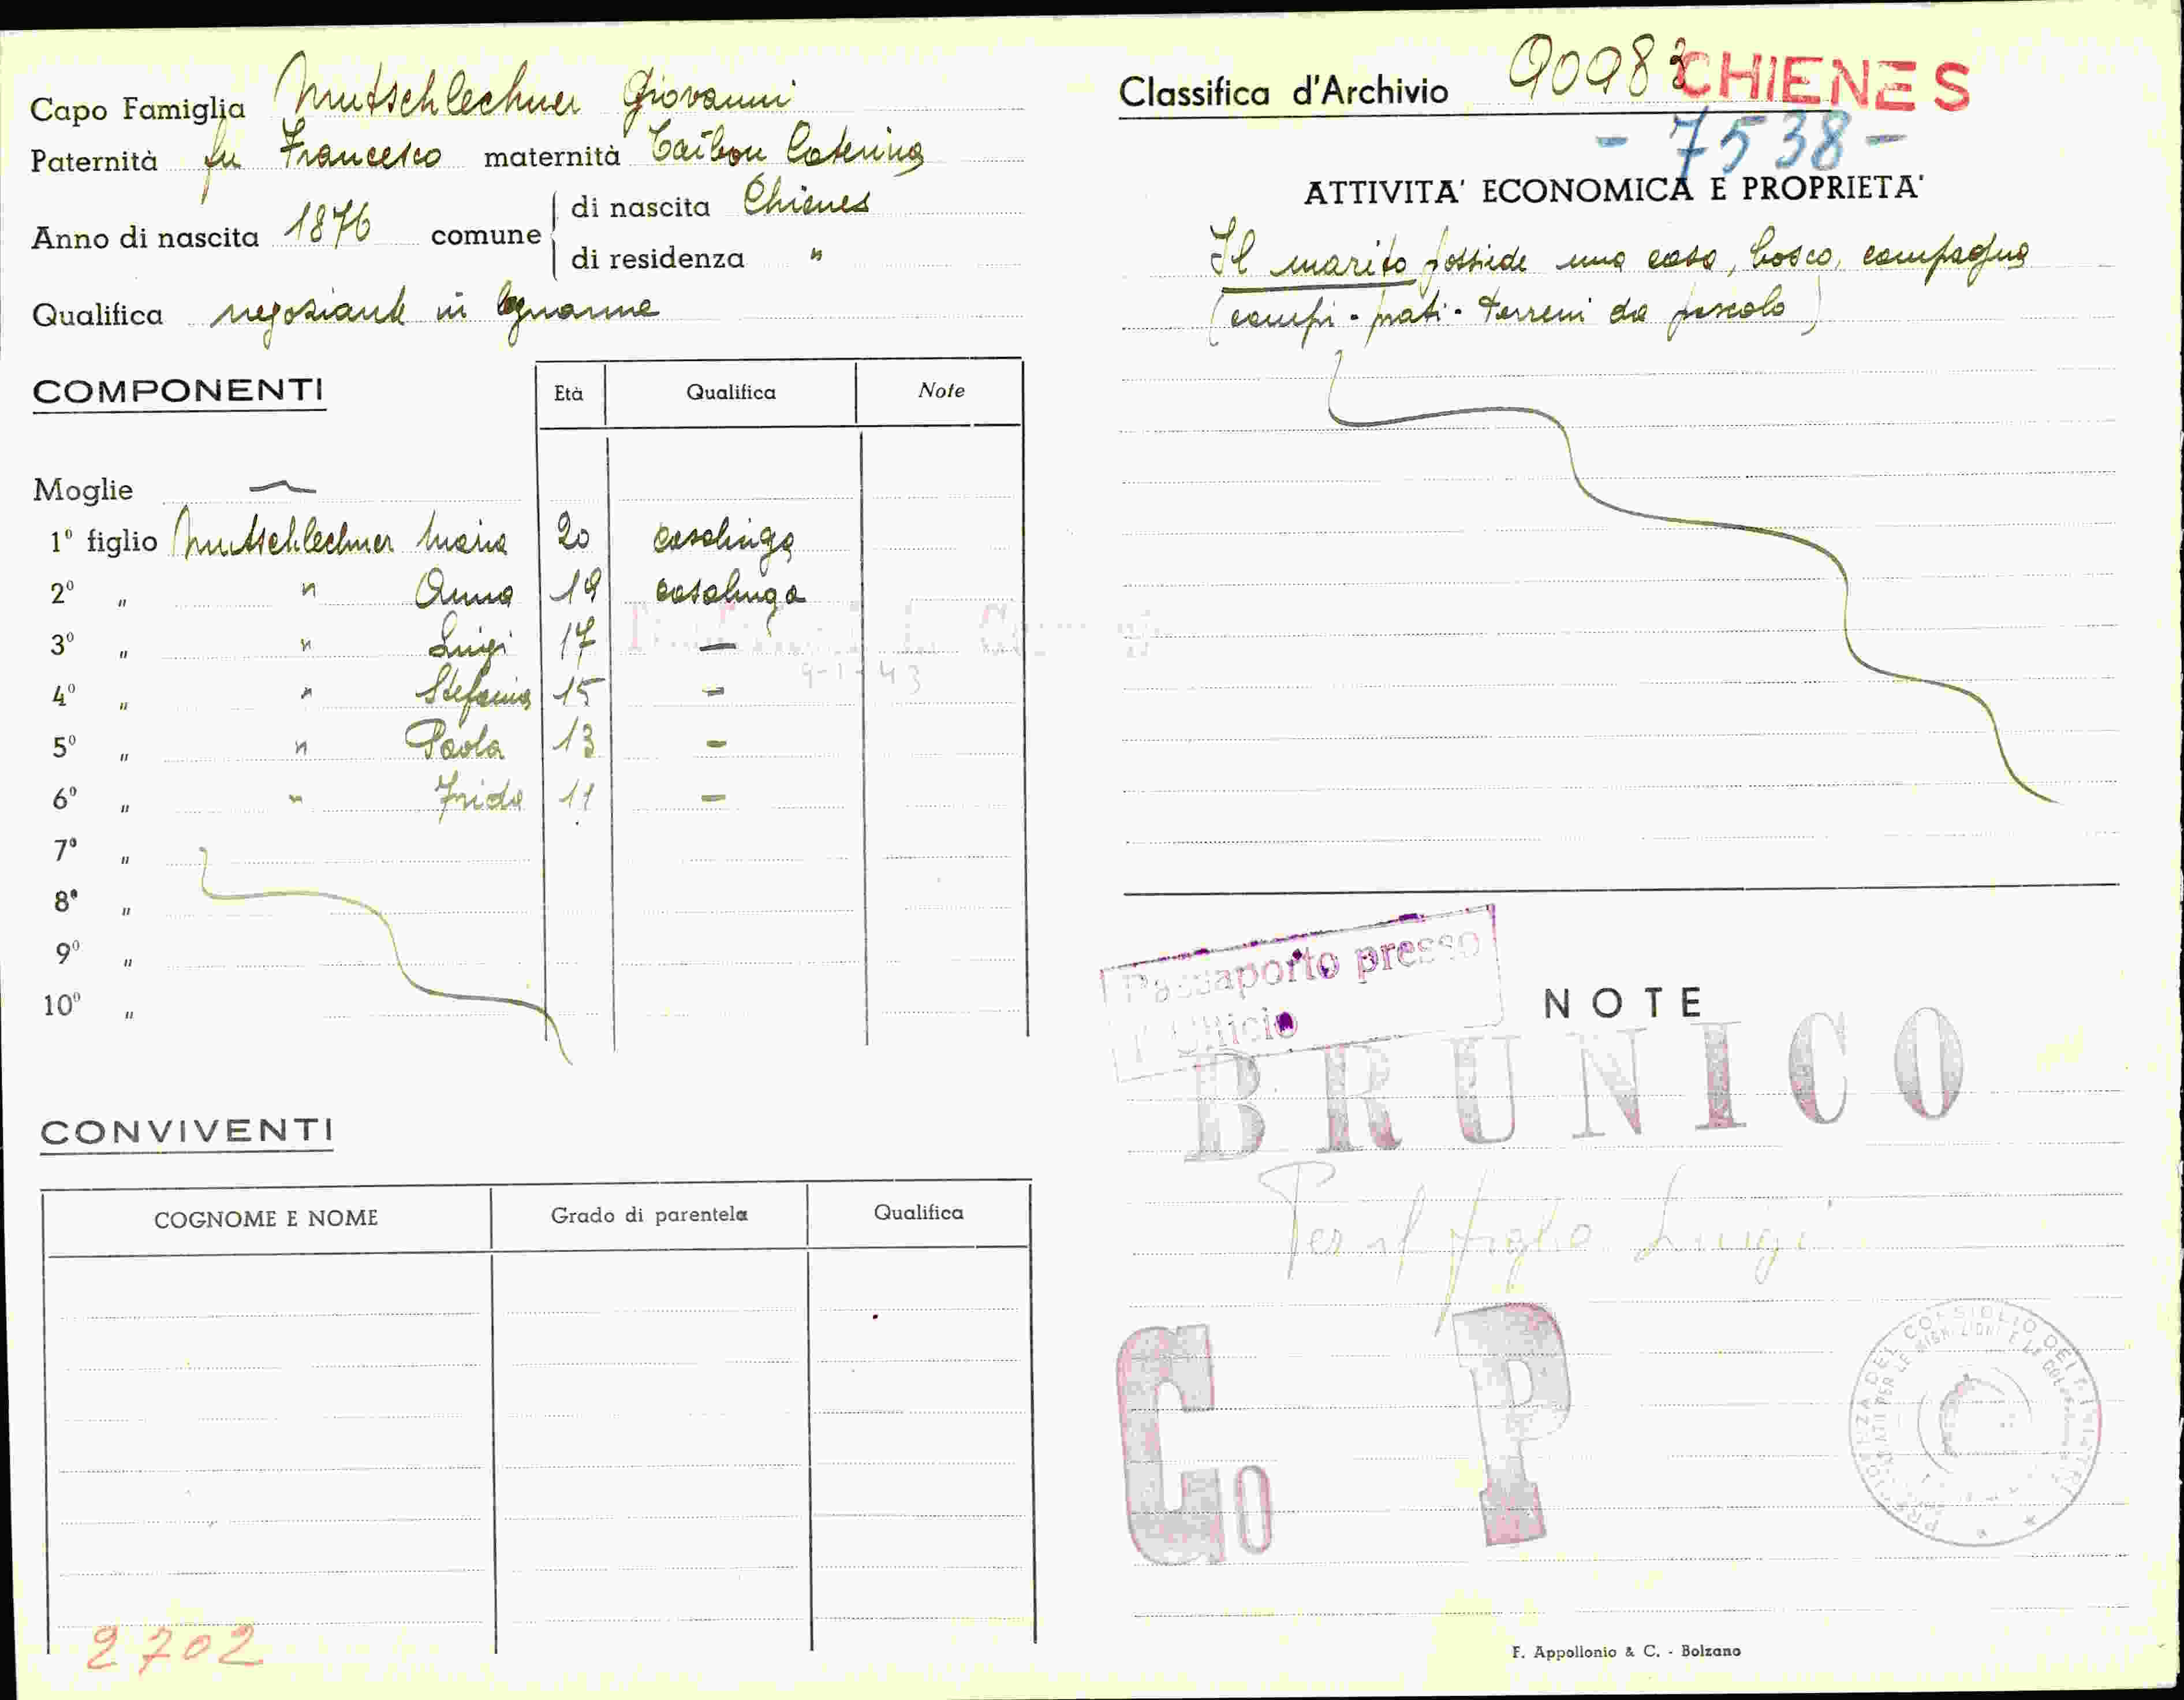 Capo Famiglia Mutschlechner Giovanni
Paternità fu Francesco maternità Taibon Caterina
Anno di nascita 1876 comune di nascita Chienes
di residenza "
Qualifica negoziante in legname
COMPONENTI Età Qualifica Note
Moglie —
1º figlio Mutschlechner Maria 20 casalinga
2º " " Anna 19 casalinga
3º " " Luigi 17 —
9-1-43
4º " " Stefania 15 —
5º " " Paola 13 —
6º " " Frida 11 —
7º "
8º "
9º "
10º "
CONVIVENTI
COGNOME E NOME Grado di parentela Qualifica
2702
Classifica d'Archivio 90983 CHIENES
- 7538 -
ATTIVITA' ECONOMICA E PROPRIETA'
Il marito possiede una casa, bosco, campagna
(campi - prati - terreni da pascolo)
Passaporto presso
l'Ufficio
NOTE
BRUNICO
Per il figlio Luigi
Co P
F. Appollonio & C. - Bolzano